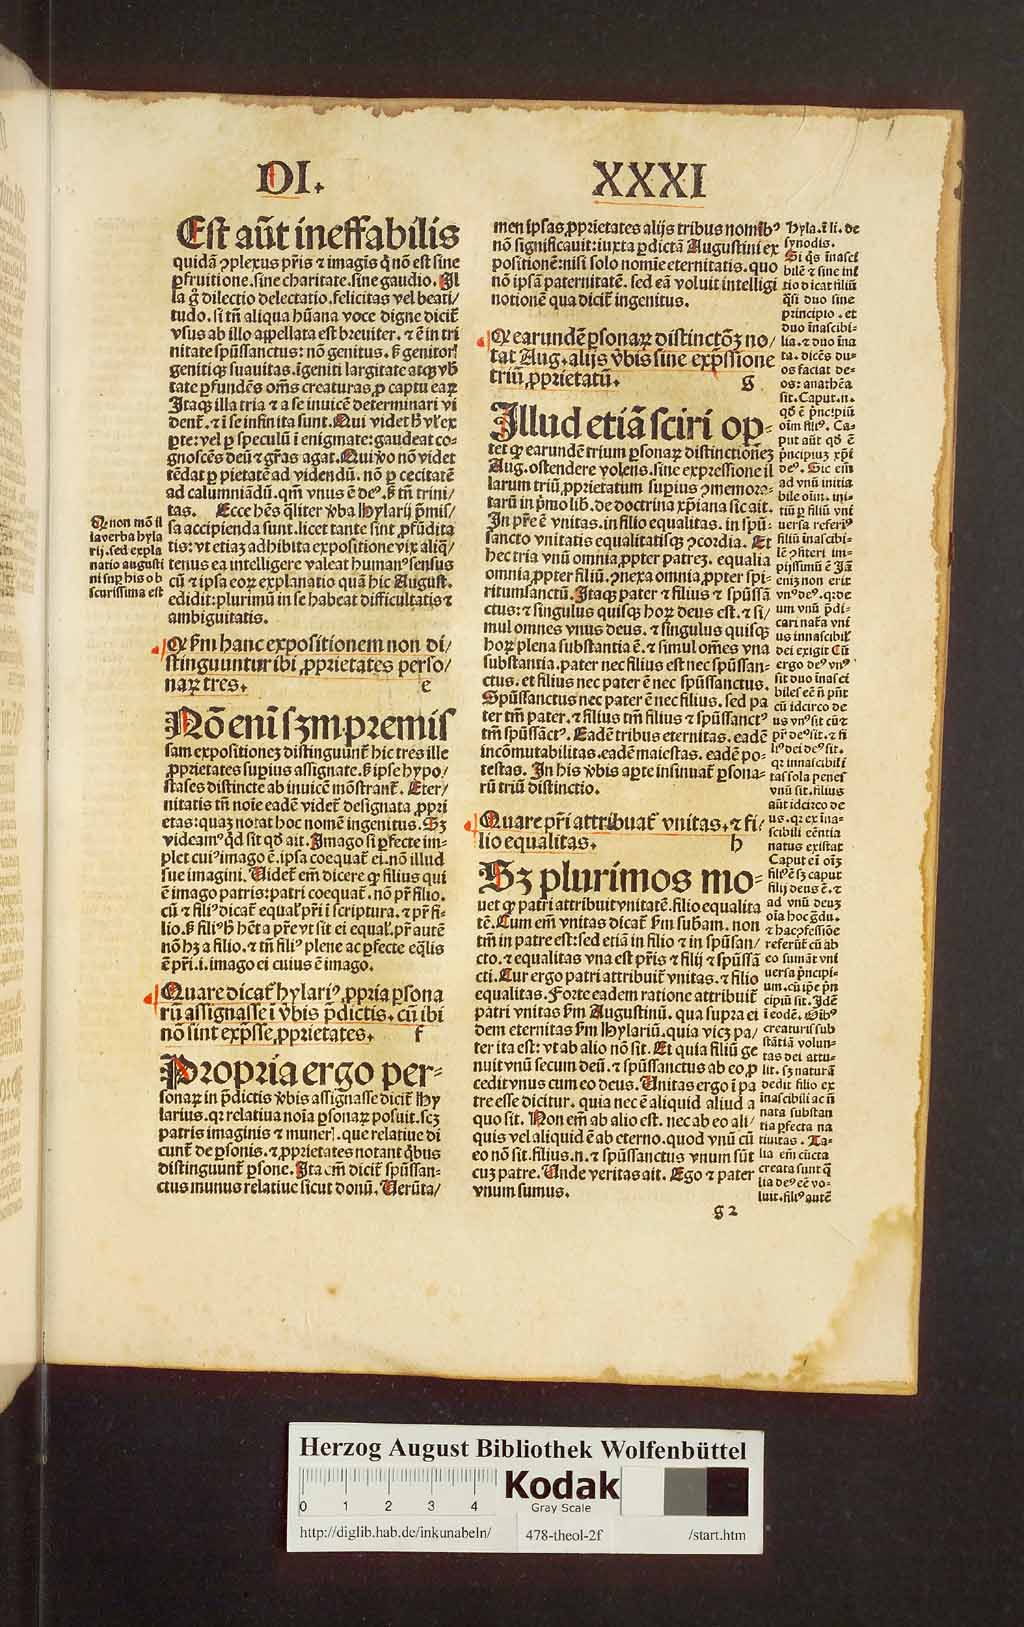 DI.
XXXI
Est aūt ineffabilis
quidā ↄplexus pr̄is ⁊ imagīs q̄ nō est sine
ꝑfruitione.sine charitate.sine gaudio. Il
la g̊ dilectio delectatio.felicitas vel beati/
tudo.si tn̄ aliqua hūana voce digne dicit̄
vsus ab illo appellata est breuiter. ⁊ ē in tri
nitate spūssanctus: nō genitus. ß genitor͛
genitiq; suauitas.īgenti largitate atq; vb̄
tate ꝑfundēs om̄s creaturas ꝓ captu eaꝝ
Itaq; illa tria ⁊ a se inuicē determinari vi
dent̄.⁊ ī se infinita sunt. Qui videt h̄ vl̓ ex
ꝑte: vel ꝑ speculū ī enigmate: gaudeat co-
gnoscēs deū ⁊ gr̄as agat. Qui v̓o nō videt
tēdat ꝑ pietatē ad videndū. nō ꝑ cecitatē
ad calumniādū. qm̄ vnus ē deꝰ. ß tn̄ trini/
tas. Ecce hēs q̄liter v̓ba Hylarij p̄mis/
sa accipienda sunt.licet tante sint ꝓfūdita
tis: vt etiaꝫ adhibita expositione vix aliq̄/
tenus ea intelligere valeat humanꝰ sensus
cū ⁊ ipsa eoꝝ explanatio quā hic August.
edidit: plurimū in se habeat difficultatis ⁊
ambiguitatis.
Q non mō il
la verba hyla
rij.sed expla
natio augusti
ni suꝑ his ob
scurissima est
Qꝙ ẜm hanc expositionem non di/
stinguuntur ibi ꝓprietates perso/
naꝝ tres. e
Nō enī sꝫm premis
sam expositioneꝫ distinguunt̄ hic tres ille
ꝓprietates suꝑius assignate. ß ipse hypo/
stases distincte ab inuicē mōstrant̄. Eter/
nitatis tn̄ noīe eadē videt̄ designata ꝓpri
etas: quaꝫ notat hoc nomē ingenitus. Sꝫ
videamꝰ qd̓ sit qd̓ ait. Imago si ꝑfecte im-
plet cuiꝰ imago ē. ipsa coequat̄ ei. nō illud
sue imagini. Videt̄ em̄ dicere ꝙ filius qui
ē imago patris: patri coequat̄. nō pr̄ filio.
cū ⁊ filiꝰ dicat̄ equal̓ pr̄i ī scriptura. ⁊ pr̄ fi-
lio. ß filiꝰ h̄ hēt a pr̄e vt sit ei equal̓. pr̄ autē
nō hꝫ a filio. ⁊ tn̄ filiꝰ plene ac ꝑfecte eq̄lis
ē pr̄i.i.imago ei cuius ē imago.
Quare dicat̄ hylariꝰ ꝓpria ꝑsona
rū assignasse ī v̓bis p̄dictis. cū ibi
nō sint exp̄sse ꝓprietates. f
Propria ergo per-
sonaꝝ in p̄dictis v̓bis assignasse dicit̄ Hy
larius. qꝛ relatiua noīa ꝑsonaꝝ posuit. scꝫ
patris imaginis ⁊ muner͛. que relatiue di
cunt̄ de ꝑsonis. ⁊ ꝓprietates notant qb̓us
distinguunt̄ ꝑsone. Ita em̄ dicit̄ spūssan-
ctus munus relatiue sicut donū. Verūta/
men ipsas ꝓprietates alijs tribus nomībꝰ
nō significauit: iuxta ꝑdictā Augustini ex
positionē: nisi solo nomīe eternitatis. quo
nō ipsā paternitatē. sed eā voluit intelligi
notionē qua dicit̄ ingenitus.
Qꝙ earundē ꝑsonaꝝ distinctōꝫ no/
tat Aug. alijs v̓bis sine exp̄ssione
triū ꝓprietatū. g
Illud etiā sciri op-
tet ꝙ earundē trium ꝑsonaꝝ distinctionēꝫ
Aug. ostendere volens. sine expressione il
larum triū ꝓprietatum suꝑius ↄmemora-
tarū in p̄mo lib. de doctrina xp̄iana sic ait.
In pr̄e ē vnitas. in filio equalitas. in spū
sancto vnitatis equalitatisq; ↄcordia. Et
hec tria vnū omnia ꝓpter patreꝫ. equalia
omnia ꝓpter filiū. ↄnexa omnia ꝓpter spi-
ritumsanctū. Itaq; pater ⁊ filius ⁊ spūssā
ctus: ⁊ singulus quisq; hoꝝ deus est. ⁊ si/
mul omnes vnus deus. ⁊ singulus quisq;
hoꝝ plena substantia ē. ⁊ simul om̄es vna
substantia. pater nec filius est nec spūssan-
ctus. et filius nec pater ē nec spūssanctus.
Spūssanctus nec pater ē nec filius. sed pa
ter tm̄ pater. ⁊ filius tm̄ filius ⁊ spūssanctꝰ
tm̄ spūssāctꝰ. Eadē tribus eternitas. eadē
incōmutabilitas. eadē maiestas. eadē po-
testas. In his v̓bis aꝑte insinuat̄ ꝑsona-
rū triū distinctio.
Quare pr̄i attribuat̄ vnitas. ⁊ fi/
lio equalitas. h
Sꝫ plurimos mo-
uet ꝙ patri attribuit̄ vnitatē. filio equalita
tē. Cum em̄ vnitas dicat̄ ẜm sub̄am. non
tm̄ in patre est: sed etiā in filio ⁊ in spūsan/
cto. ⁊ equalitas vna est pr̄is ⁊ filij ⁊ spūssā
cti. Cur ergo patri attribuit̄ vnitas. ⁊ filio
equalitas. Forte eadem ratione attribuit̄
patri vnitas ẜm Augustinū. qua supra ei
dem eternitas ẜm Hylariū. quia vicꝫ pa/
ter ita est: vt ab alio nō sit. Et quia filiū ge
nuit vnū secum deū. ⁊ spūssanctus ab eo ꝓ
cedit vnus cum eo deus. Vnitas ergo ī pa
tre esse dicitur. quia nec ē aliquid aliud a
quo sit. Non em̄ ab alio est. nec ab eo ali/
quis vel aliquid ē ab eterno. quod vnū cū
eo nō sit. filius.n. ⁊ spūssanctus vnum sūt
cuꝫ patre. Vnde veritas ait. Ego ⁊ pater
vnum sumus.
g2
Hyla.ī li. de
synodis.
Si qs̄ īnasci
bilē ⁊ sine ini
tio dicat filiū
q̄si duo sine
principio. et
duo īnascibi-
lia. ⁊ duo īna
ta. dicēs du-
os faciat de-
os: anathēa
sit. Caput.n.
qd̓ ē p̄ncipiū
oīm filiꝰ. Ca-
put aūt qd̓ ē
p̄ncipiuꝫ xp̄i
deꝰ. Sic em̄
ad vnū initia
bile oīm. ini-
tiū ꝑ filiū vni
uersa referiꝰ
filiū īnascibi-
lē ↄfiteri im-
pijssimū ē Iā
eniꝫ non erit
vnꝰ deꝰ. q: de
um vnū p̄di-
cari nat̄a vni
us innascibil̓
dei exigit Cū
ergo deꝰ vnꝰ
sit duo īnasci
biles eē n̄ pn̄t
cū idcirco de
us vnꝰ sit cū ⁊
pr̄ deꝰ sit. ⁊ fi
liꝰ dei deꝰ sit.
qꝛ innascibili
tas sola penes
vnū sit. filius
aūt idcirco de
us. qꝛ ex īna-
scibili eēntia
natus existat
Caput ei oīꝫ
filiꝰ ē sꝫ caput
filij deus ē. ⁊
ad vnū deuꝫ
oīa hoc g̊du.
⁊ hac ꝓfessiōe
referūt̄ cū ab
eo sumāt vni
uersa p̄ncipi-
um. cū ip̄e p̄n
cipiū sit. Idē
ī eodē. Oibꝰ
creaturis sub
stātiā volun-
tas dei attu-
lit. sꝫ naturā
dedit filio ex
īnascibili ac n̄
nata substan
tia ꝑfecta na
tiuitas. Ta-
lia em̄ cūcta
creata sunt q̄
lia deꝰ eē vo-
luit. filiꝰ autē
Herzog August Bibliothek Wolfenbüttel
0 1 2 3 4
Kodak
Gray Scale
http://diglib.hab.de/inkunabeln/ 478-theol-2f /start.htm